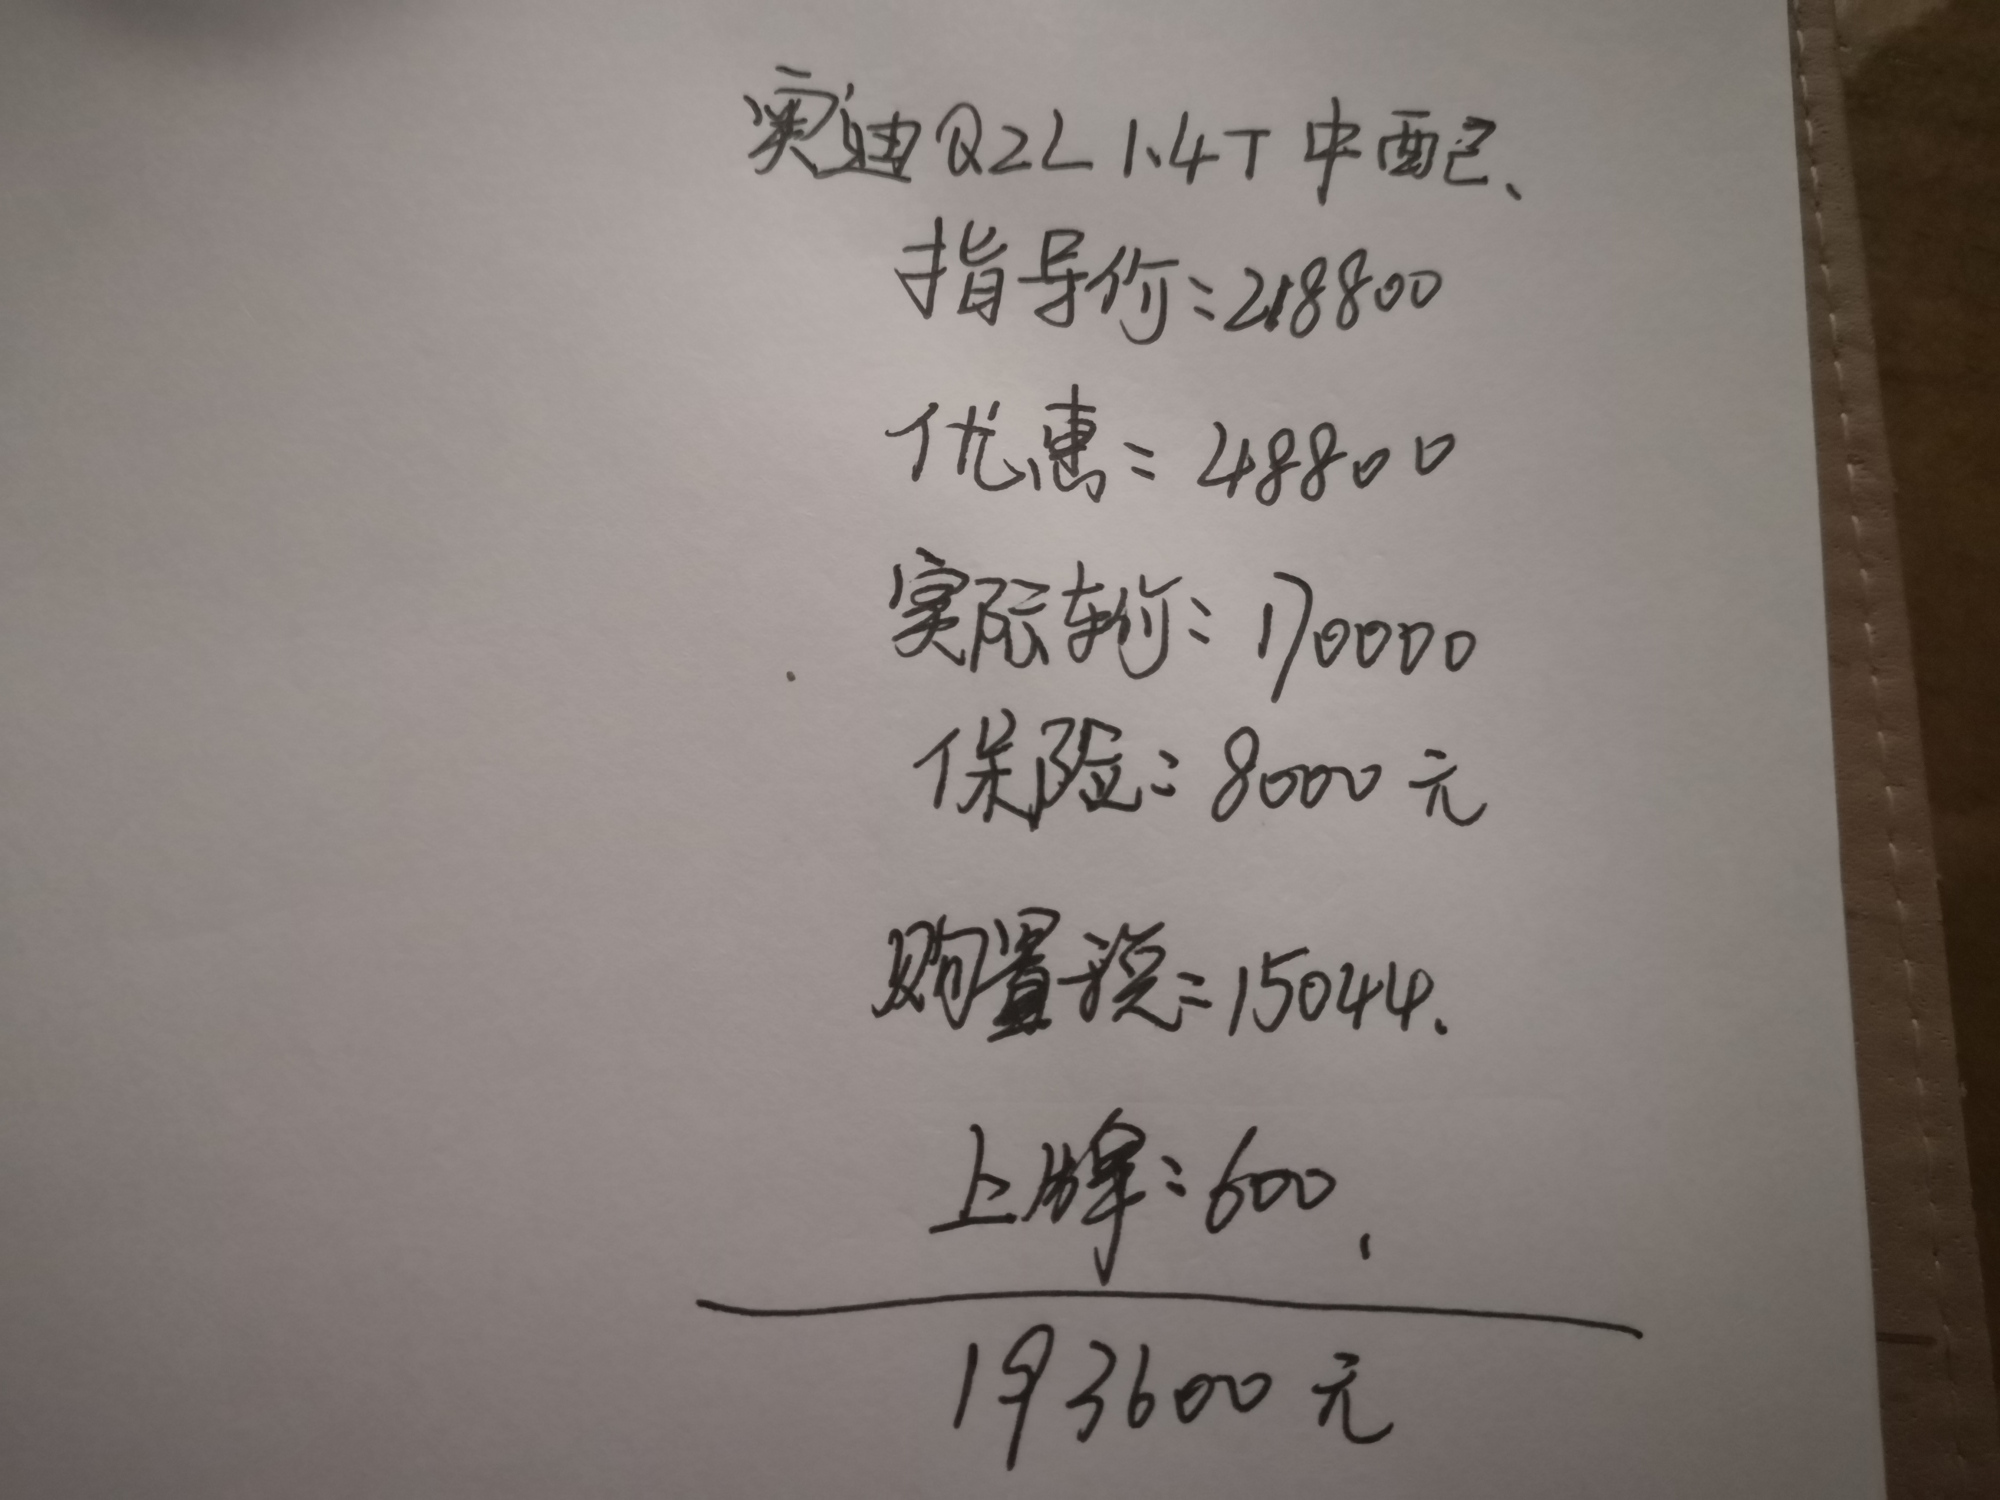 奥迪Q2L 1.4T 中配、
指导价:218800
优惠:48800
实际车价:170000
保险:8000元
购置税:15044.
上牌:600.
193600元